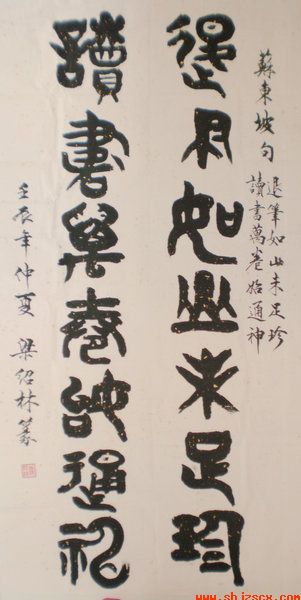 蘇東坡句
退筆如山未足珍
讀書萬卷始通神
退筆如山未足珍
讀書萬卷始通神
壬辰年仲夏 梁紹林篆
www.sbjzscx.com